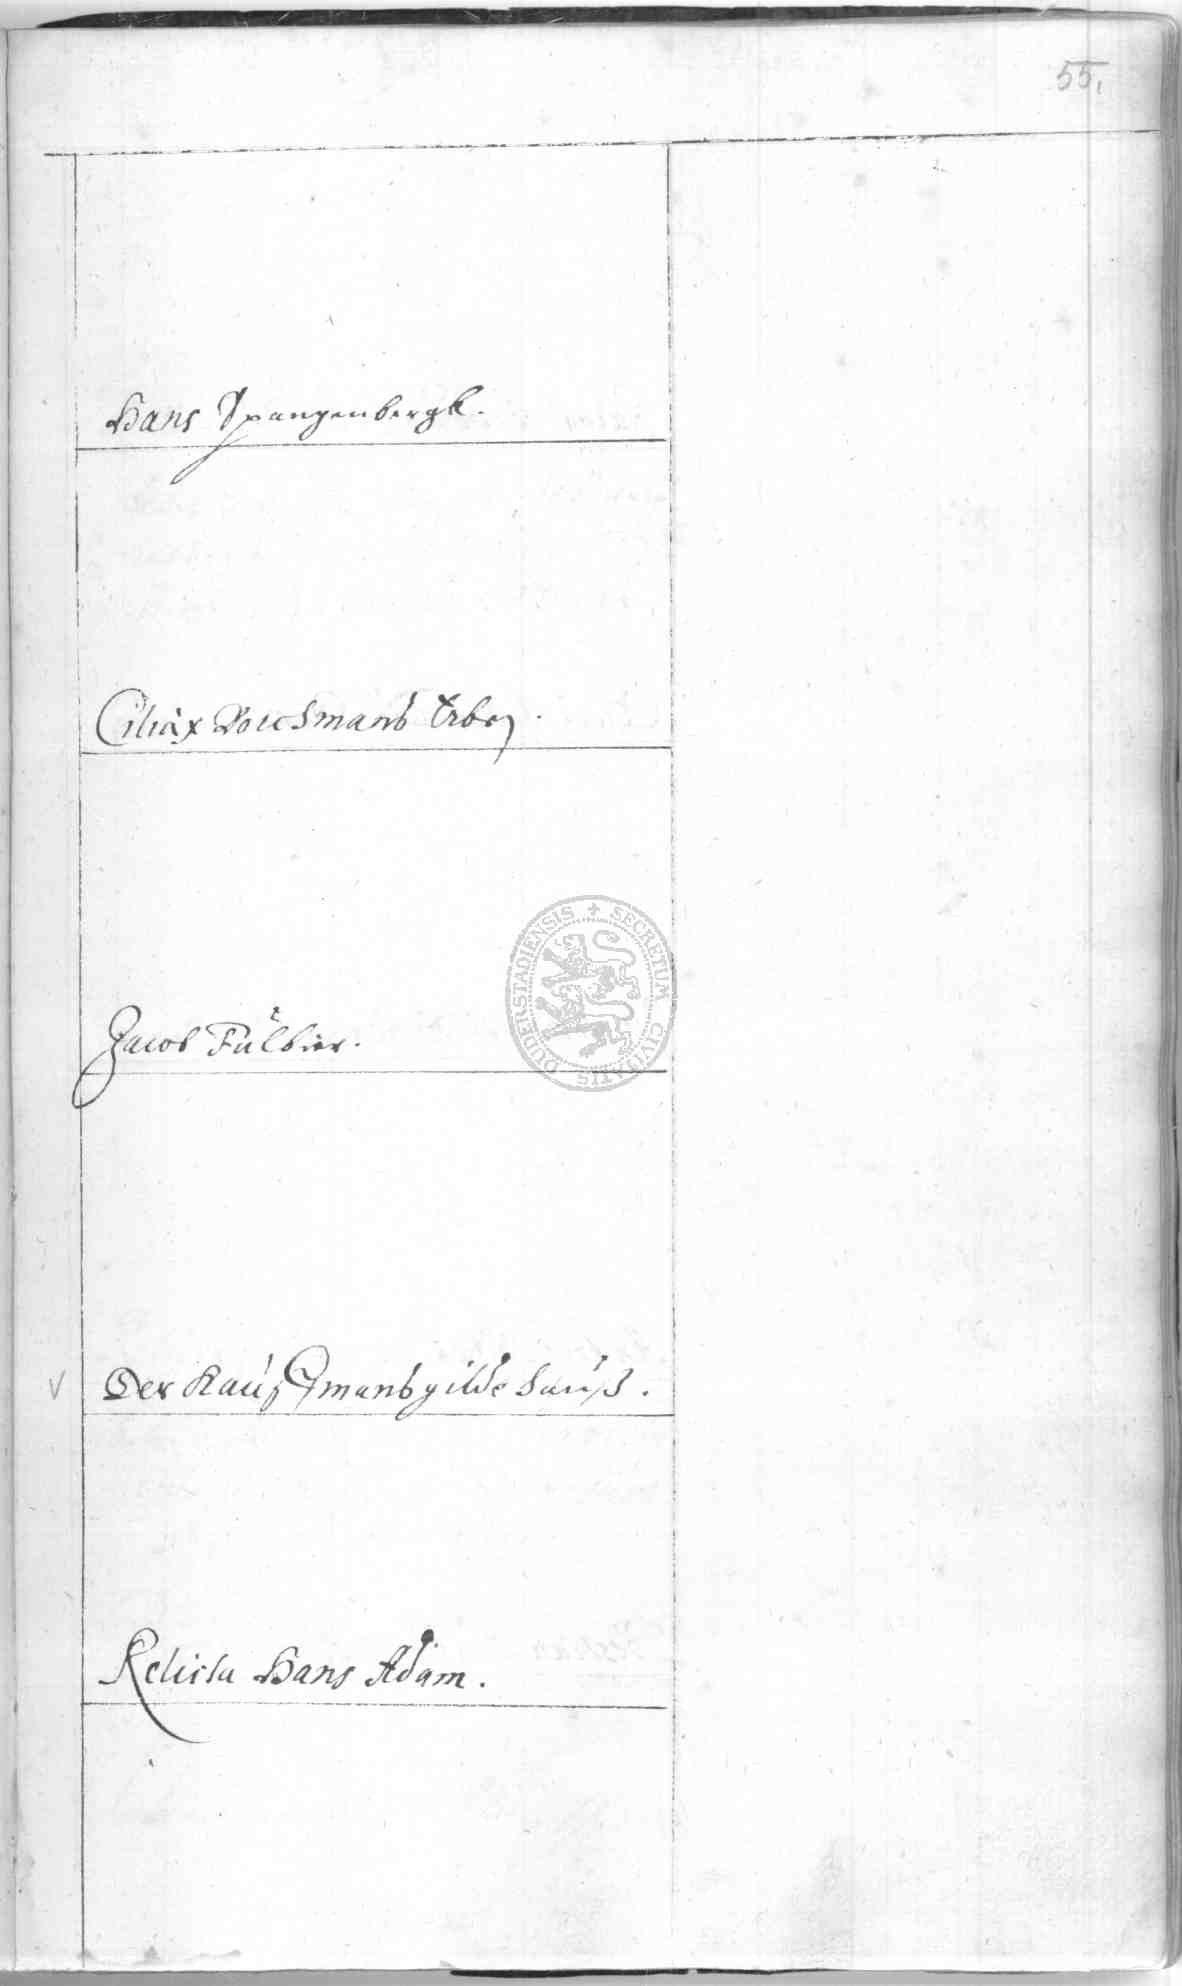 55.
Hans Spangenbergk.
Ciliax Borchmans Erben.
DUDERSTADIENSIS + SECRETUM CIVITATIS
Jacob Fülbier.
V Der Kauffmansgilde hauß.
Relicta Hans Adam.